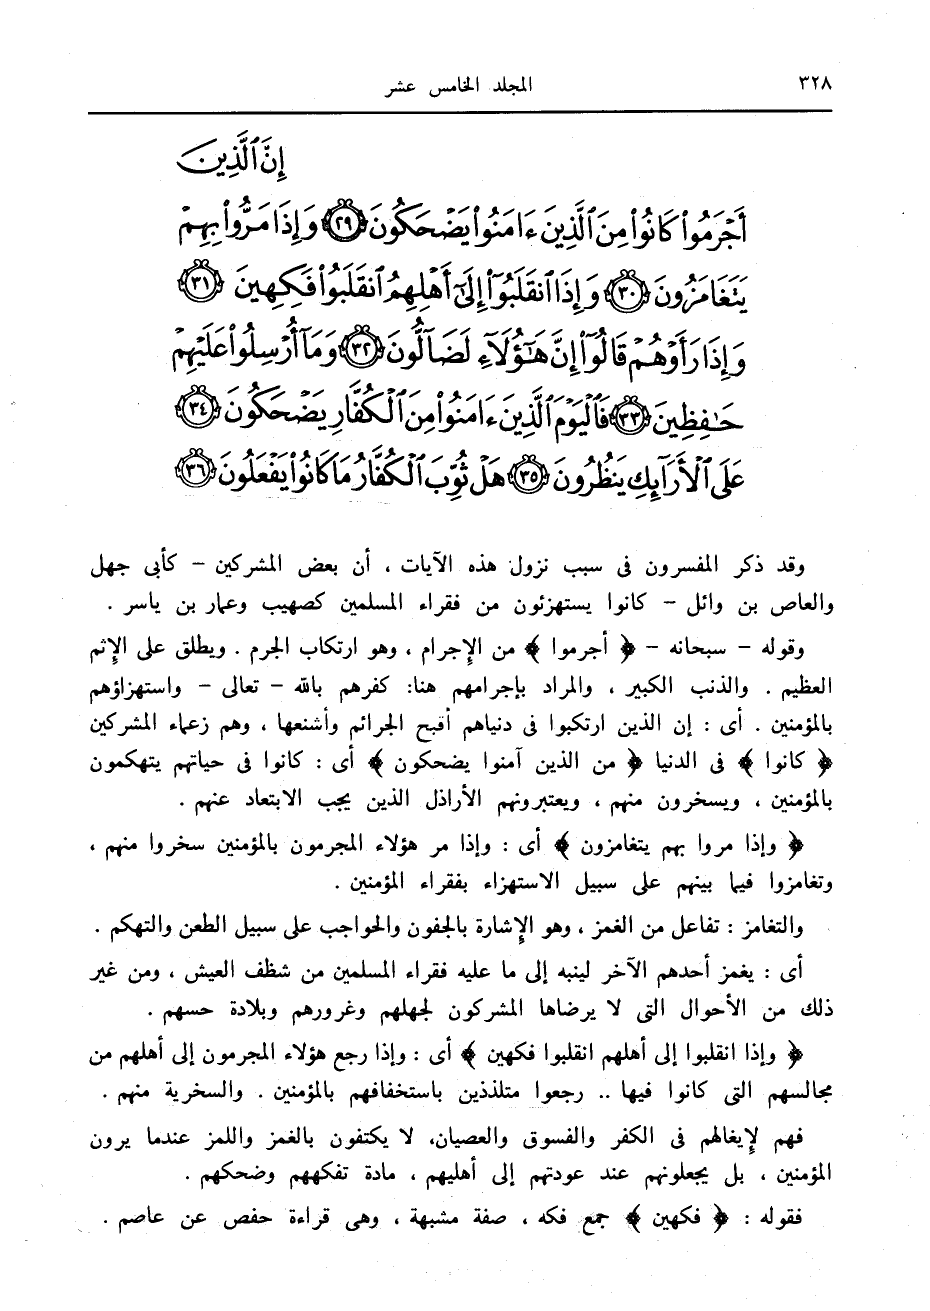 ٣٢٨ المجلد الخامس عشر
إِنَّ ٱلَّذِينَ
أَجْرَمُوا۟ كَانُوا۟ مِنَ ٱلَّذِينَ ءَامَنُوا۟ يَضْحَكُونَ ٢٩ وَإِذَا مَرُّوا۟ بِهِمْ
يَتَغَامَزُونَ ٣٠ وَإِذَا ٱنقَلَبُوٓا۟ إِلَىٰٓ أَهْلِهِمُ ٱنقَلَبُوا۟ فَكِهِينَ ٣١
وَإِذَا رَأَوْهُمْ قَالُوٓا۟ إِنَّ هَٰٓؤُلَآءِ لَضَآلُّونَ ٣٢ وَمَآ أُرْسِلُوا۟ عَلَيْهِمْ
حَٰفِظِينَ ٣٣ فَٱلْيَوْمَ ٱلَّذِينَ ءَامَنُوا۟ مِنَ ٱلْكُفَّارِ يَضْحَكُونَ ٣٤
عَلَى ٱلْأَرَآئِكِ يَنظُرُونَ ٣٥ هَلْ ثُوِّبَ ٱلْكُفَّارُ مَا كَانُوا۟ يَفْعَلُونَ ٣٦
وقد ذكر المفسرون فى سبب نزول هذه الآيات ، أن بعض المشركين – كأبى جهل
والعاص بن وائل – كانوا يستهزئون من فقراء المسلمين كصهيب وعمار بن ياسر .
وقوله – سبحانه – ﴿ أجرموا ﴾ من الإِجرام ، وهو ارتكاب الجرم . ويطلق على الإِثم
العظيم . والذنب الكبير ، والمراد بإجرامهم هنا: كفرهم بالله – تعالى – واستهزاؤهم
بالمؤمنين . أى : إن الذين ارتكبوا فى دنياهم أقبح الجرائم وأشنعها ، وهم زعماء المشركين
﴿ كانوا ﴾ فى الدنيا ﴿ من الذين آمنوا يضحكون ﴾ أى : كانوا فى حياتهم يتهكمون
بالمؤمنين ، ويسخرون منهم ، ويعتبرونهم الأراذل الذين يجب الابتعاد عنهم .
﴿ وإذا مروا بهم يتغامزون ﴾ أى : وإذا مر هؤلاء المجرمون بالمؤمنين سخروا منهم ،
وتغامزوا فيما بينهم على سبيل الاستهزاء بفقراء المؤمنين .
والتغامز : تفاعل من الغمز ، وهو الإِشارة بالجفون والحواجب على سبيل الطعن والتهكم .
أى : يغمز أحدهم الآخر لينبه إلى ما عليه فقراء المسلمين من شظف العيش ، ومن غير
ذلك من الأحوال التى لا يرضاها المشركون لجهلهم وغرورهم وبلادة حسهم .
﴿ وإذا انقلبوا إلى أهلهم انقلبوا فكهين ﴾ أى : وإذا رجع هؤلاء المجرمون إلى أهلهم من
مجالسهم التى كانوا فيها .. رجعوا متلذذين باستخفافهم بالمؤمنين . والسخرية منهم .
فهم لإِيغالهم فى الكفر والفسوق والعصيان، لا يكتفون بالغمز واللمز عندما يرون
المؤمنين ، بل يجعلونهم عند عودتهم إلى أهليهم ، مادة تفكههم وضحكهم .
فقوله : ﴿ فكهين ﴾ جمع فكه ، صفة مشبهة ، وهى قراءة حفص عن عاصم .